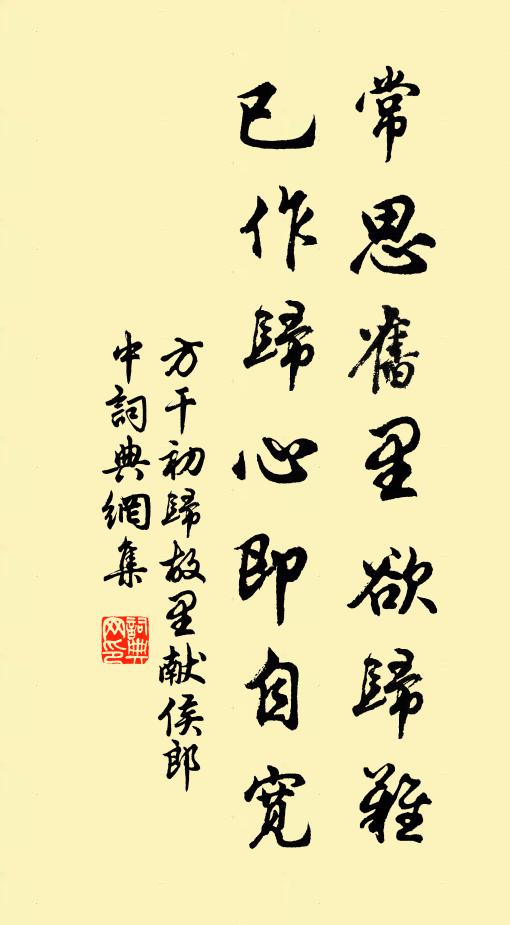 常思舊里欲歸難
已作歸心即自寬
方干初歸故里献侯郎
中詞典網集
詞典
网印